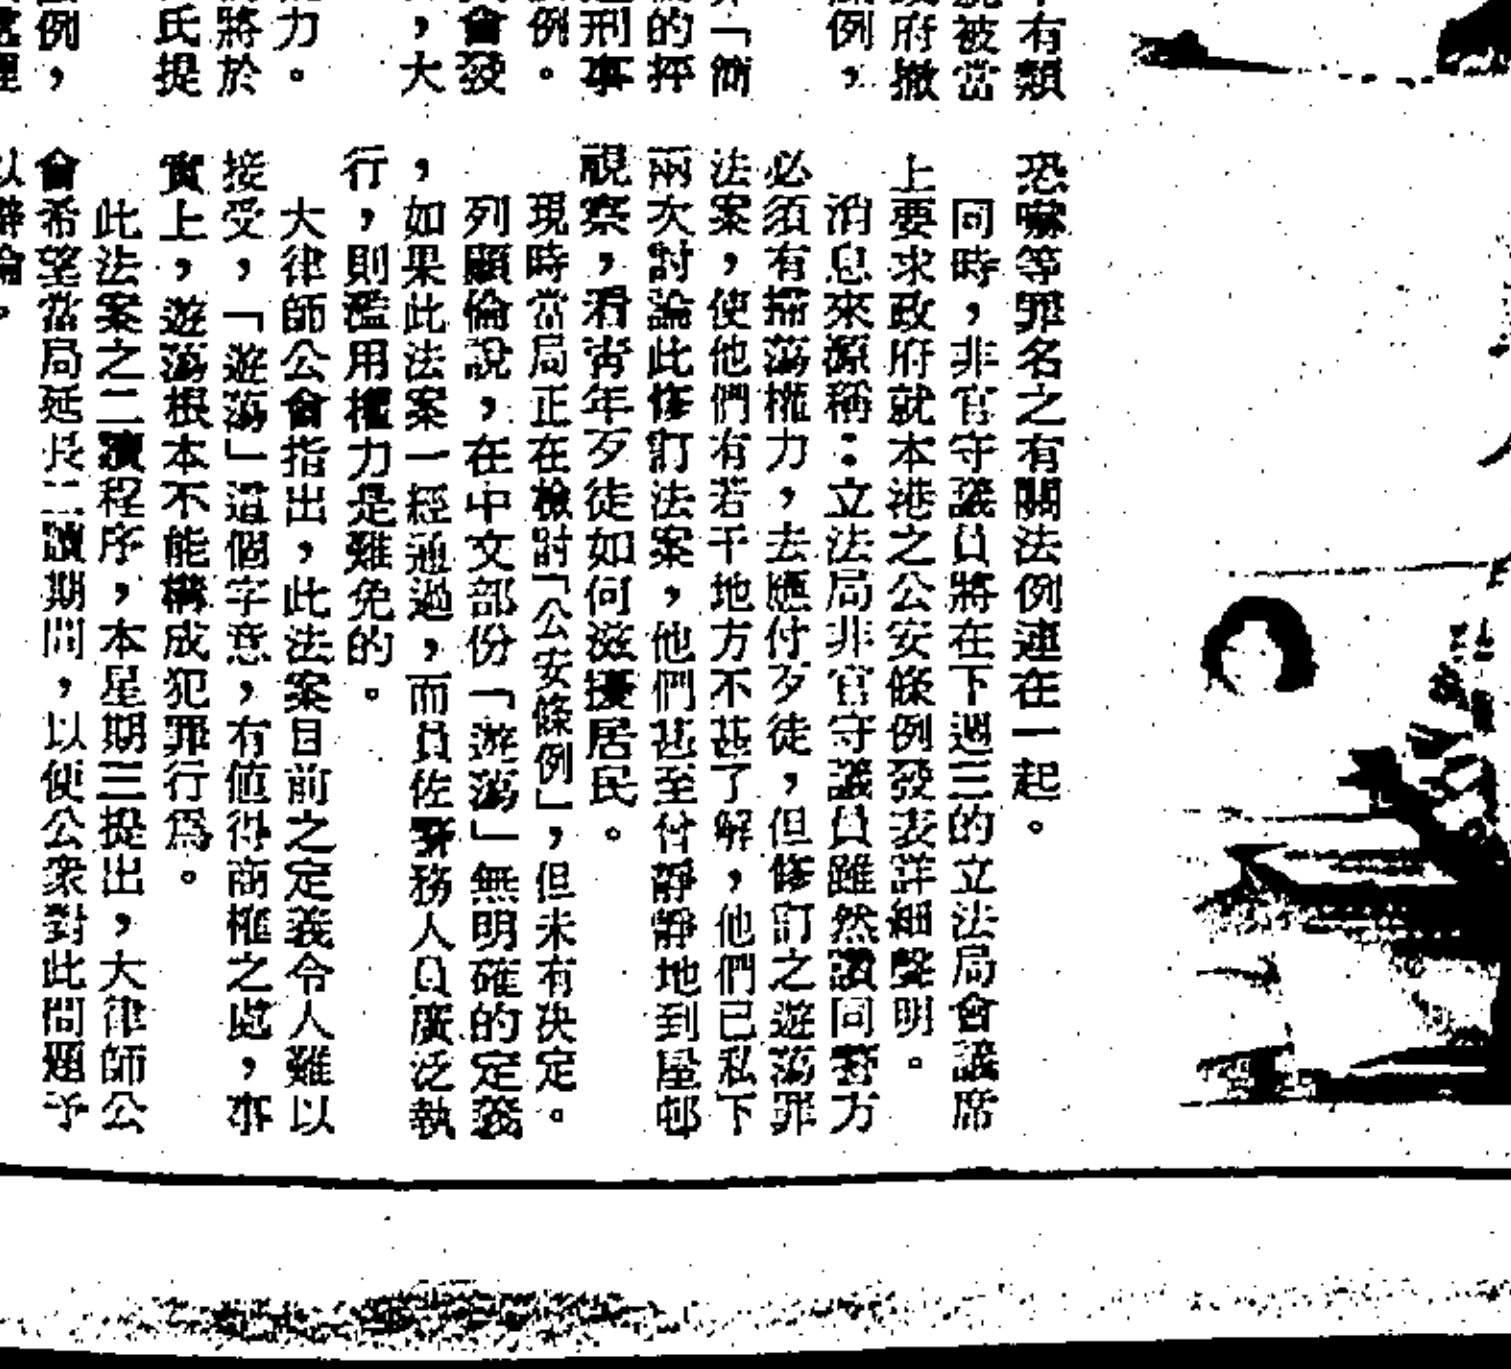 有類
被當
府撤
例，
「簡
的抨
刑事
例。
會發
，大
力。
將於
氏提
例，
恐嚇等罪名之有關法例連在一起。
同時，非官守議員將在下週三的立法局會議席
上要求政府就本港之公安條例發表詳細聲明。
消息來源稱：立法局非官守議員雖然讚同警方
必須有掃蕩權力，去應付歹徒，但修訂之遊蕩罪
法案，使他們有若干地方不甚了解，他們已私下
兩次討論此修訂法案，他們甚至付靜靜地到屋邨
視察，看靑年歹徒如何滋擾居民。
現時當局正在檢討「公安條例」，但未有決定。
列顯倫說，在中文部份「遊蕩」無明確的定義
，如果此法案一經通過，而員佐警務人員廣泛執
行，則濫用權力是難免的。
大律師公會指出，此法案目前之定義令人難以
接受，「遊蕩」這個字意，有値得商榷之處，事
實上，遊蕩根本不能構成犯罪行爲。
此法案之二讀程序，本星期三提出，大律師公
會希望當局延長二讀期間，以便公衆對此問題予
以辯論。